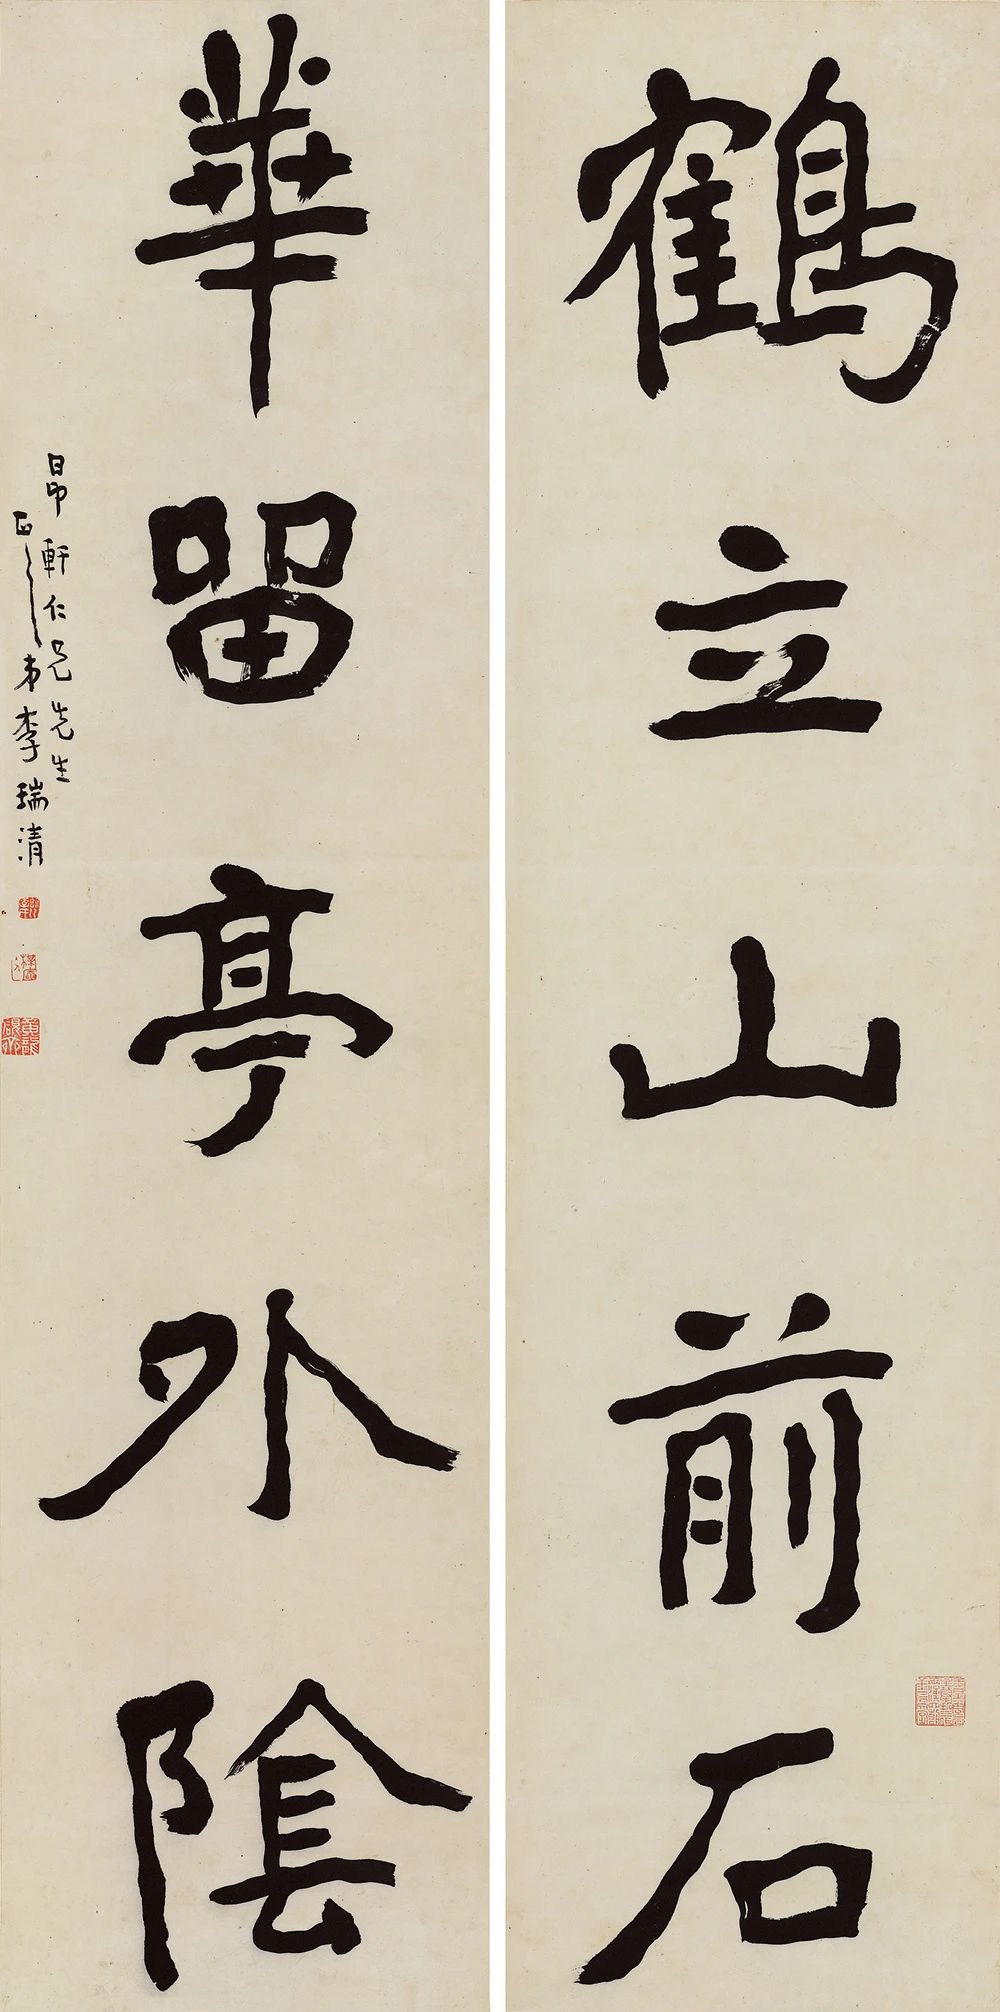 鶴立山前石
華留亭外陰
昂軒仁兄先生
正之弟李瑞清